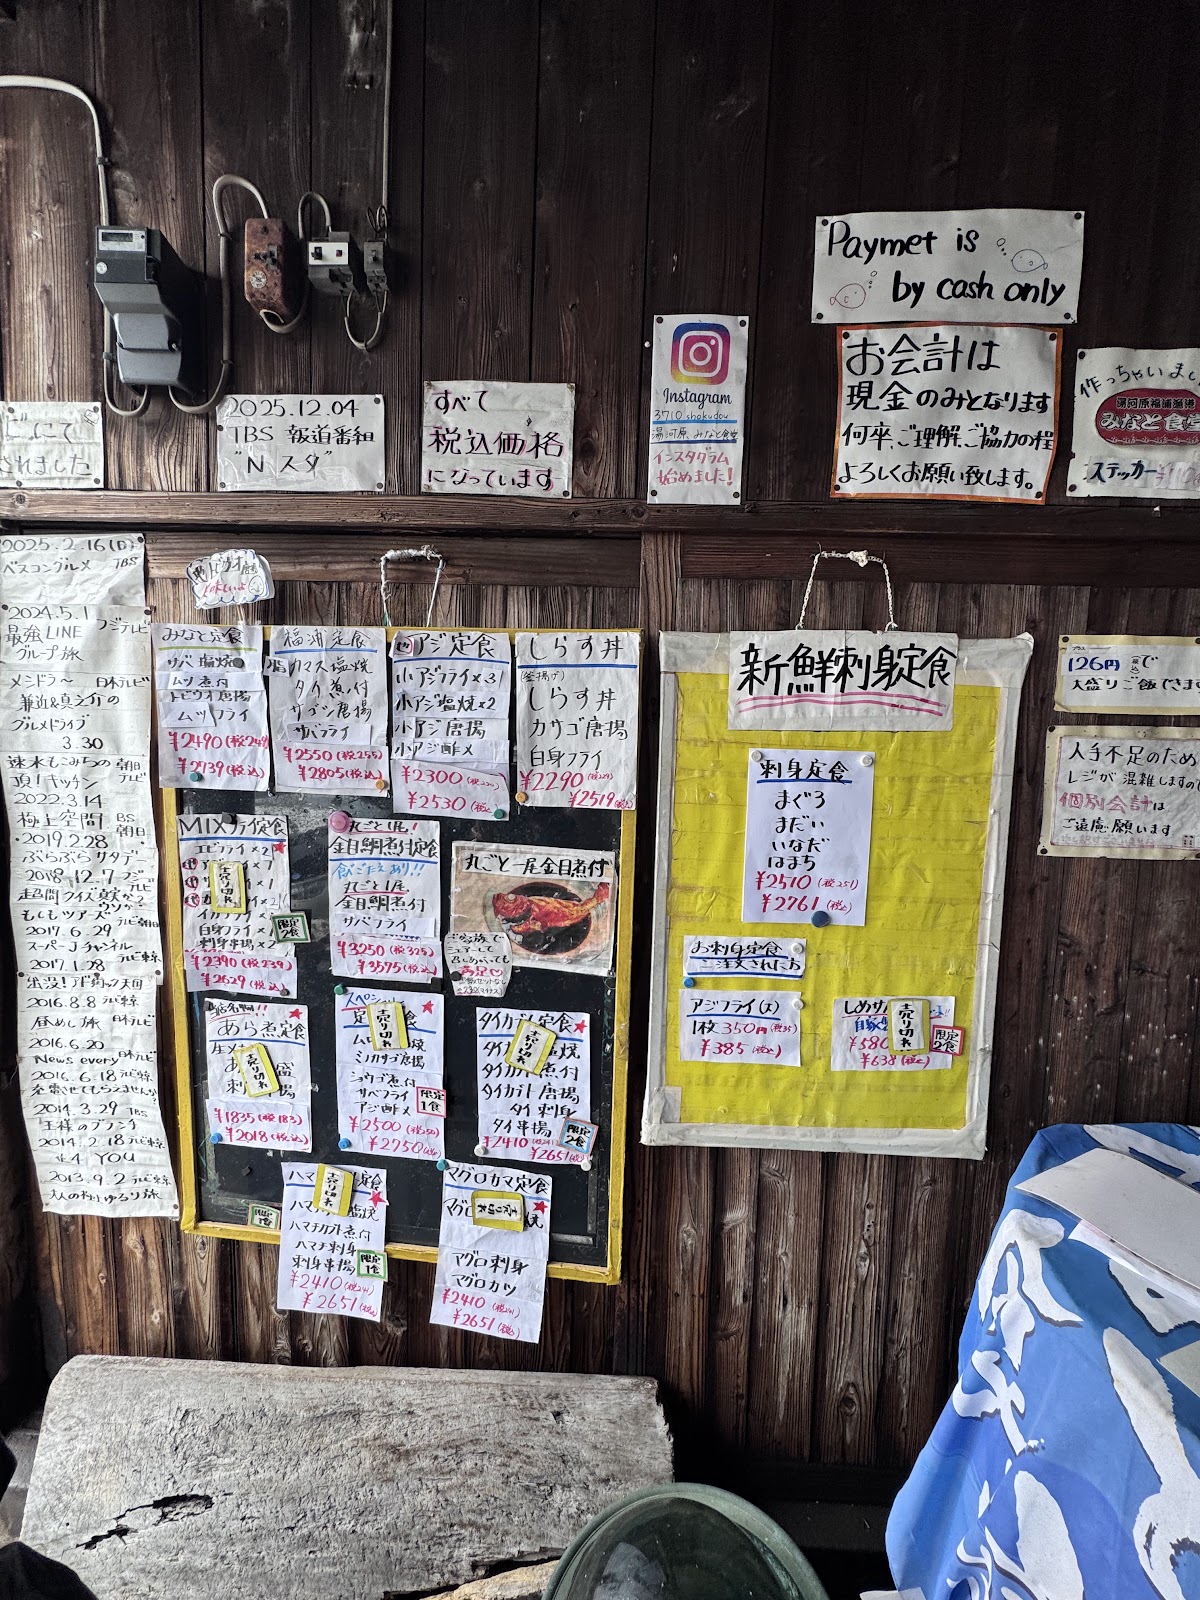 Paymet is
by cash only
お会計は
現金のみとなります
何卒、ご理解、ご協力の程
よろしくお願い致します。
Instagram
3710 shokudou
湯河原、みなと食堂
インスタグラム
始めました!
すべて
税込価格
になっています
2025.12.04
TBS 報道番組
"Nスタ"
にて
されました
作っちゃいまし
みなと食堂
ステッカー
2025.2.16(日)
ベスコングルメ TBS
2024.5.1
最強LINE フジテレビ
グループ旅
メシドラ〜 日本テレビ
兼近&真之介の
グルメドライブ
3.30
速水もこみちの 朝日
頂!キッチン テレビ
2022.3.14
極上空間 BS
朝日
2019.2.28
ぶらぶらサタデー
2018.12.7 フジ
テレビ
超問クイズ真か?
ウソか?
もしもツアーズ
2017.6.29 テレビ朝日
スーパーJチャンネル
2017.1.28 テレビ東京
出没!アド街ック天国
2016.8.8 テレビ東京
昼めし旅
2016.6.20 日本テレビ
News every
2016.6.18 テレビ東京
充電させてもらえませんか?
2014.3.29 TBS
王様のブランチ
2014.2.18 テレビ東京
YOU
2013.9.2 テレビ東京
大人の極上ゆるり旅
みなと定食
サバ塩焼
ムツ煮付
トビウオ唐揚
ムツフライ
¥2490(税249
¥2739(税込)
福浦定食
カマス塩焼
タイ煮付
サゴシ唐揚
サバフライ
¥2550(税255)
¥2805(税込)
アジ定食
小アジフライ×3
小アジ塩焼×2
小アジ唐揚
小アジ酢〆
¥2300(税230)
¥2530(税込)
しらす丼
(釜揚げ)
しらす丼
カサゴ唐揚
白身フライ
¥2290(税229)
¥2519(税込)
MIXフライ定食
エビフライ×2
売り切れ
白身フライ
刺身串揚×2
限定
2食
¥2390(税239)
¥2629(税込)
丸ごと1尾!
金目鯛煮付定食
食べごたえあり!!
丸ごと1尾
金目鯛煮付
サバフライ
¥3250(税325)
¥3575(税込)
丸ごと一尾金目煮付
ご家族で
シェアーして
召しあがっても
満足♡
あら煮定食
売り切れ
¥1835(税183)
¥2018(税込)
スペシャル
売り切れ
ショウゴ煮付
サバフライ
アジ酢〆
限定
1食
¥2500(税250)
¥2750(税込)
タイカブト定食
売り切れ
タイカブト唐揚
タイ刺身
タイ串揚
限定
2食
¥2410(税241)
¥2651(税込)
売り切れ
ハマチカブト煮付
ハマチ刺身
刺身串揚
限定
1食
¥2410(税241)
¥2651(税込)
マグロカマ定食
売り切れ
マグロ刺身
マグロカツ
¥2410(税241)
¥2651(税込)
新鮮刺身定食
刺身定食
まぐろ
まだい
いなだ
はまち
¥2510(税251)
¥2761(税込)
お刺身定食
ご注文された方
アジフライ(大)
1枚350円(税35)
¥385(税込)
売り切れ
限定
2食
¥638(税込)
プラス
126円(税込)で
大盛りご飯できます
人手不足のため
レジが混雑しますので
個別会計は
ご遠慮願います